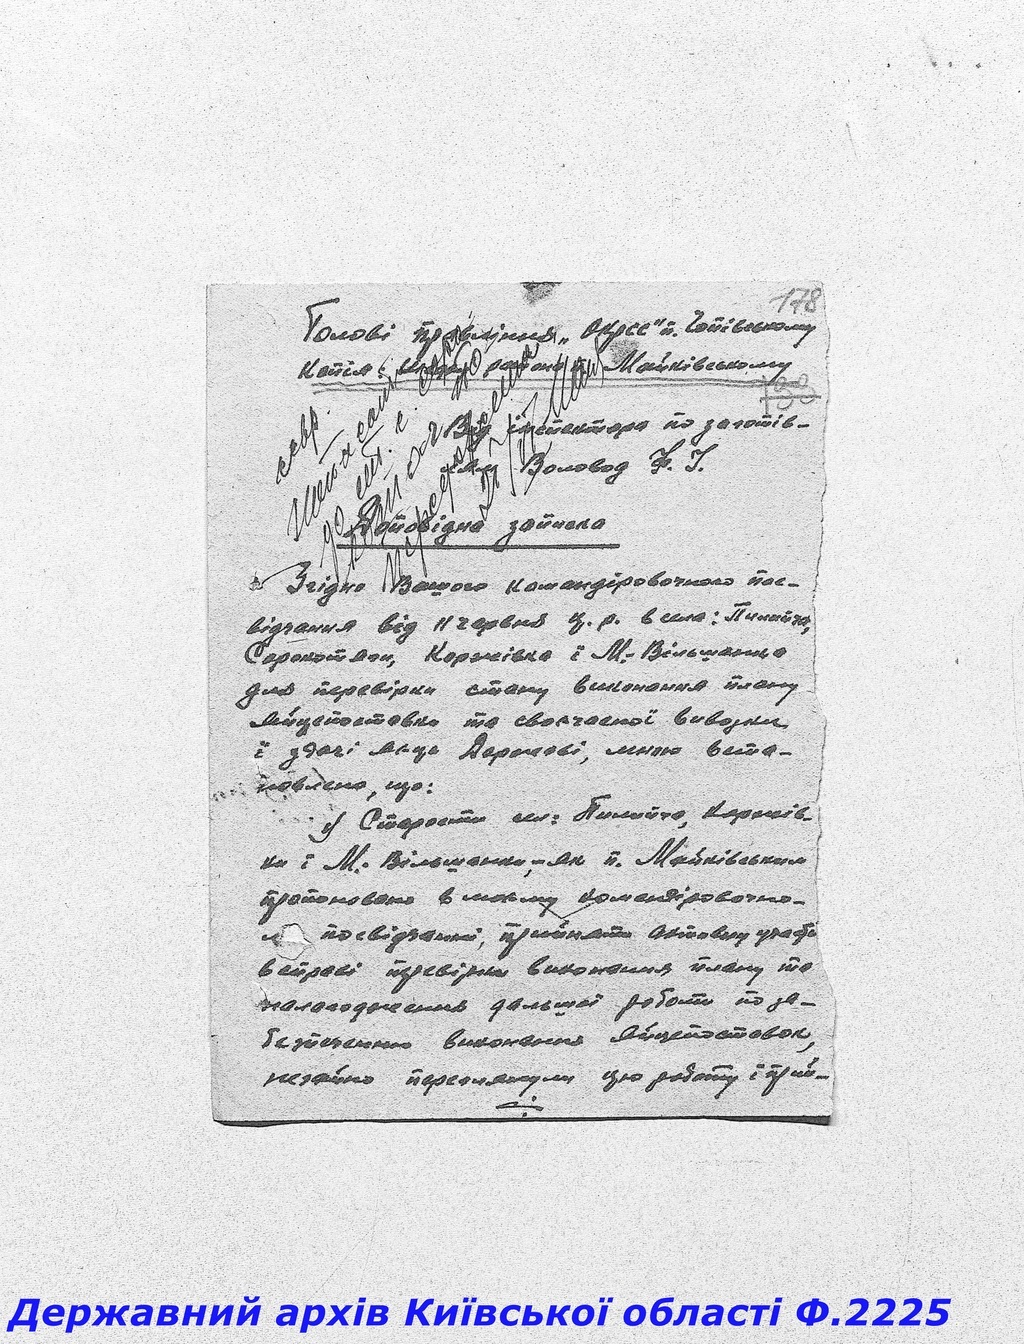 178
Голові правління "Окрсс" п. Чопівському
Копія: Майківському
188
Від інспектора по заготів-
лям Воловод Ф. І.
Доповідна записка
Згідно Вашого командіровочного пос-
відчання від 11 червня ц. р. в села: Пилипча,
Сорокотяги, Коржівка і М.-Вільшанка
для перевірки стану виконання плану
яйцепоставки та своєчасної вивозки
і здачі яєць Державі, мною вста-
новлено, що:
1) Старости сел: Пилипча, Коржів-
ки і М.-Вільшанки, як п. Майківським
пропоновано в моєму командіровочно-
му посвідчанні, прийняти активну участь
в справі перевірки виконання плану та
налагодження дальшої роботи по за-
безпеченню виконання яйцепоставок,
негайно переглянули цю роботу і прий-
Державний архів Київської області Ф.2225